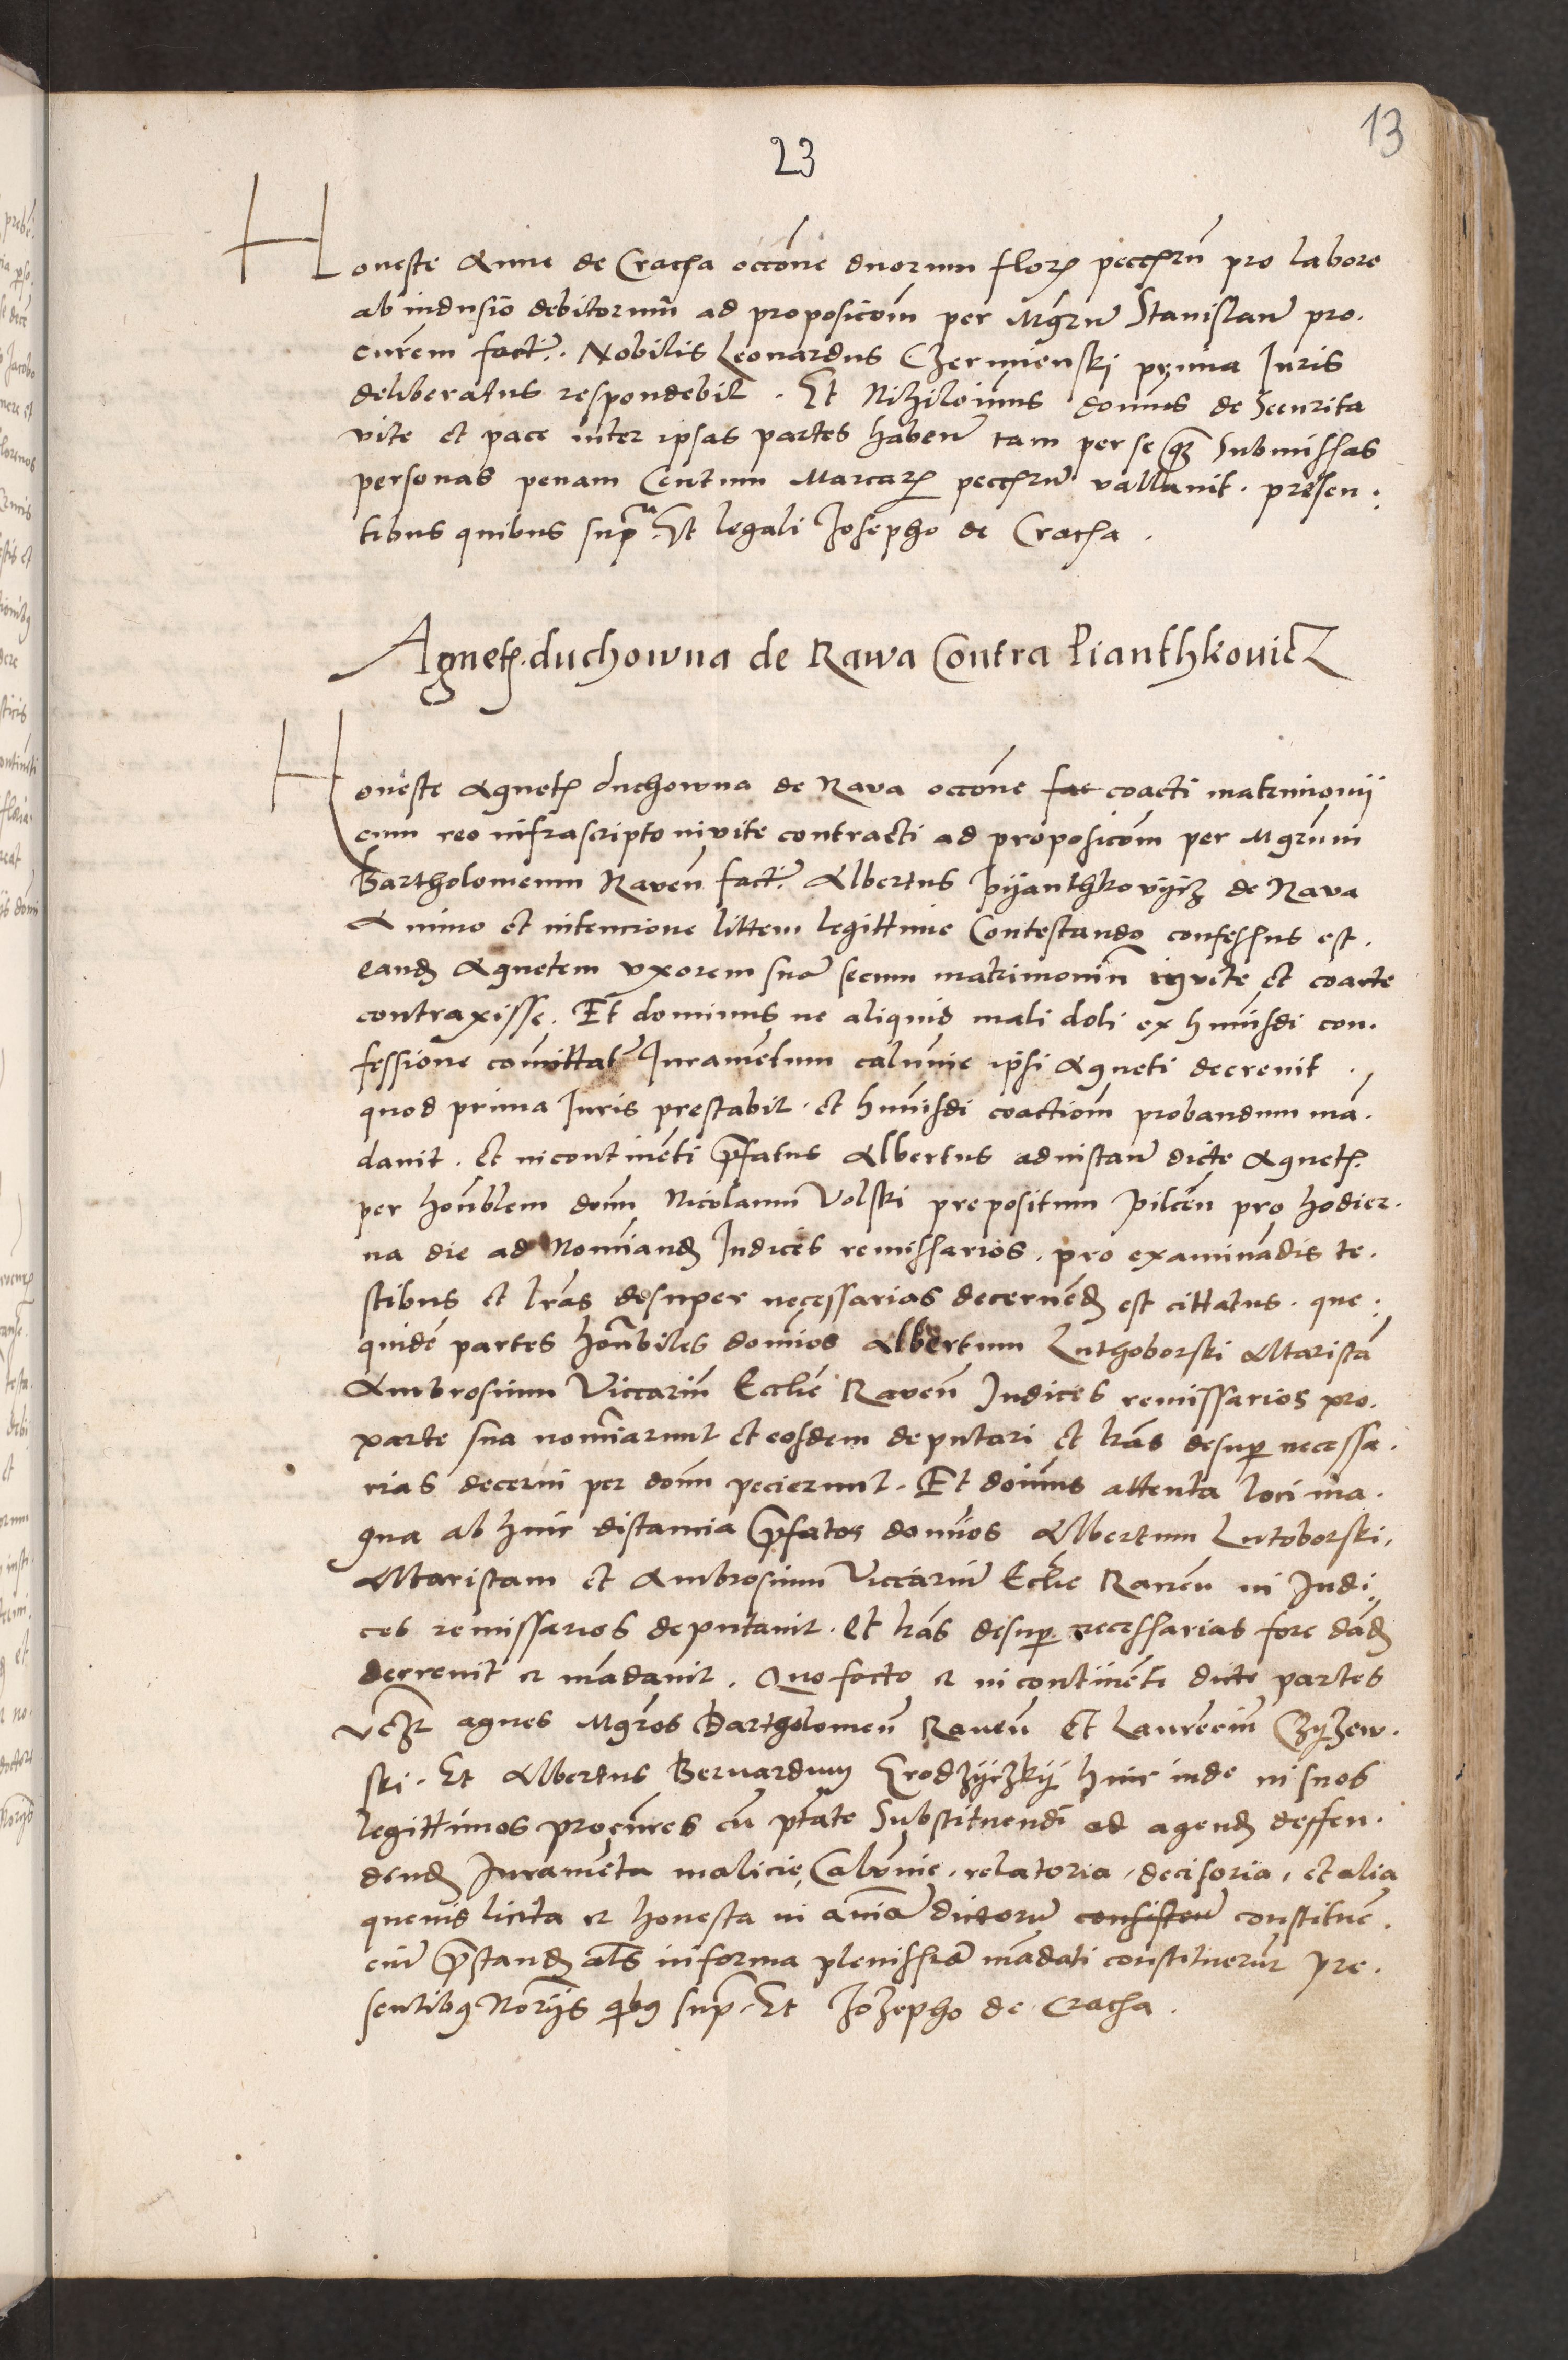 13
23
Honeste Anne de Cracha occōne duorum florꝝ pecchrū pro labore
ab indusio debitorum̄ ad proposicōm per Mgrū Stanislaū pro.
curēm fact. Nobilis Leonardus Czermienski prima Iuris
deliberatus respondebit. Et Nihilomūs dominus de Securita
vite et pace inter ipsas partes habeñ tam per se quam Submissas
personas penam Centum Marcarꝝ pecchrū vallavit. presen:
tibus quibus supra Et legali Josepho de Cracha.
Agnetꝭ. duchowna de Rawa Contra Pianthkovicz
Honeste Agnetꝭ duchowna de Rava occōne fac coacti matrimonij
cum reo infrascripto invite contracti ad proposicōm per Mgrūm
Bartholomeum Raveñ fact. Albertus Pijanthkovijcz de Rava
Animo et intencione littem legittime Contestando confessus est.
eandꝫ Agnetem uxorem suā secum matrimoniū invite et coacte
contraxisse. Et dominus ne aliquid mali doli ex hmōi con.
fessione comittatr Iuramētum calumnie ipsi Agneti decrevit.
quod prima Iuris prestabit. et hmōi coactiōm probandum mā.
davit. Et incontinēti p̄fatus Albertus ad instañ dicte Agnetꝭ
per honblem domm Nicolaum Volski prepositum Pilceñ pro hodier.
na die ad Nominandꝫ Iudices remissarios. pro examinādis te.
stibus et lrās desuper necessarias decernēdꝫ est cittatus. que:
quidē partes honorabiles domios Albertum Luthoborski Altaristā
Ambrosium Viccariū Ecclie Raveñ Iudices remissarios pro.
parte sua nominarunt et eosdem deputari et lrās desup necessa.
rias decerni per domm pecierunt. Et domīus attenta loci ma.
gna ab hinc distancia p̄fatos domios Albertum Lutoborski,
Altaristam et Ambrosium Viccariū Ecclie Raveñ in Iudi.
ces remissarios deputavit. Et lrās desup necessarias fore dādꝫ
decrevit et mādavit. Quo facto et incontinēti dicte partes
vz Agnes Mgrōs Bartholomeū Raveñ Et Laurēciū Czyzew.
ski. Et Albertus Bernardum Grodzijczkij hinc inde in suos
legittimos procūres cū ptāte Substituendi ad agendꝫ deffen.
dendꝫ Iuramēta malicie, Calūnie, relatoria, decisoria, et alia
quevis licita et honesta in aniā dictorū consisteñ constituē.
ciū p̄standꝫ als in forma plenissia mādati constituerūt Pre.
sentibꝰ Norijs qibꝰ supꝭ. Et Jozepho de Cracha.